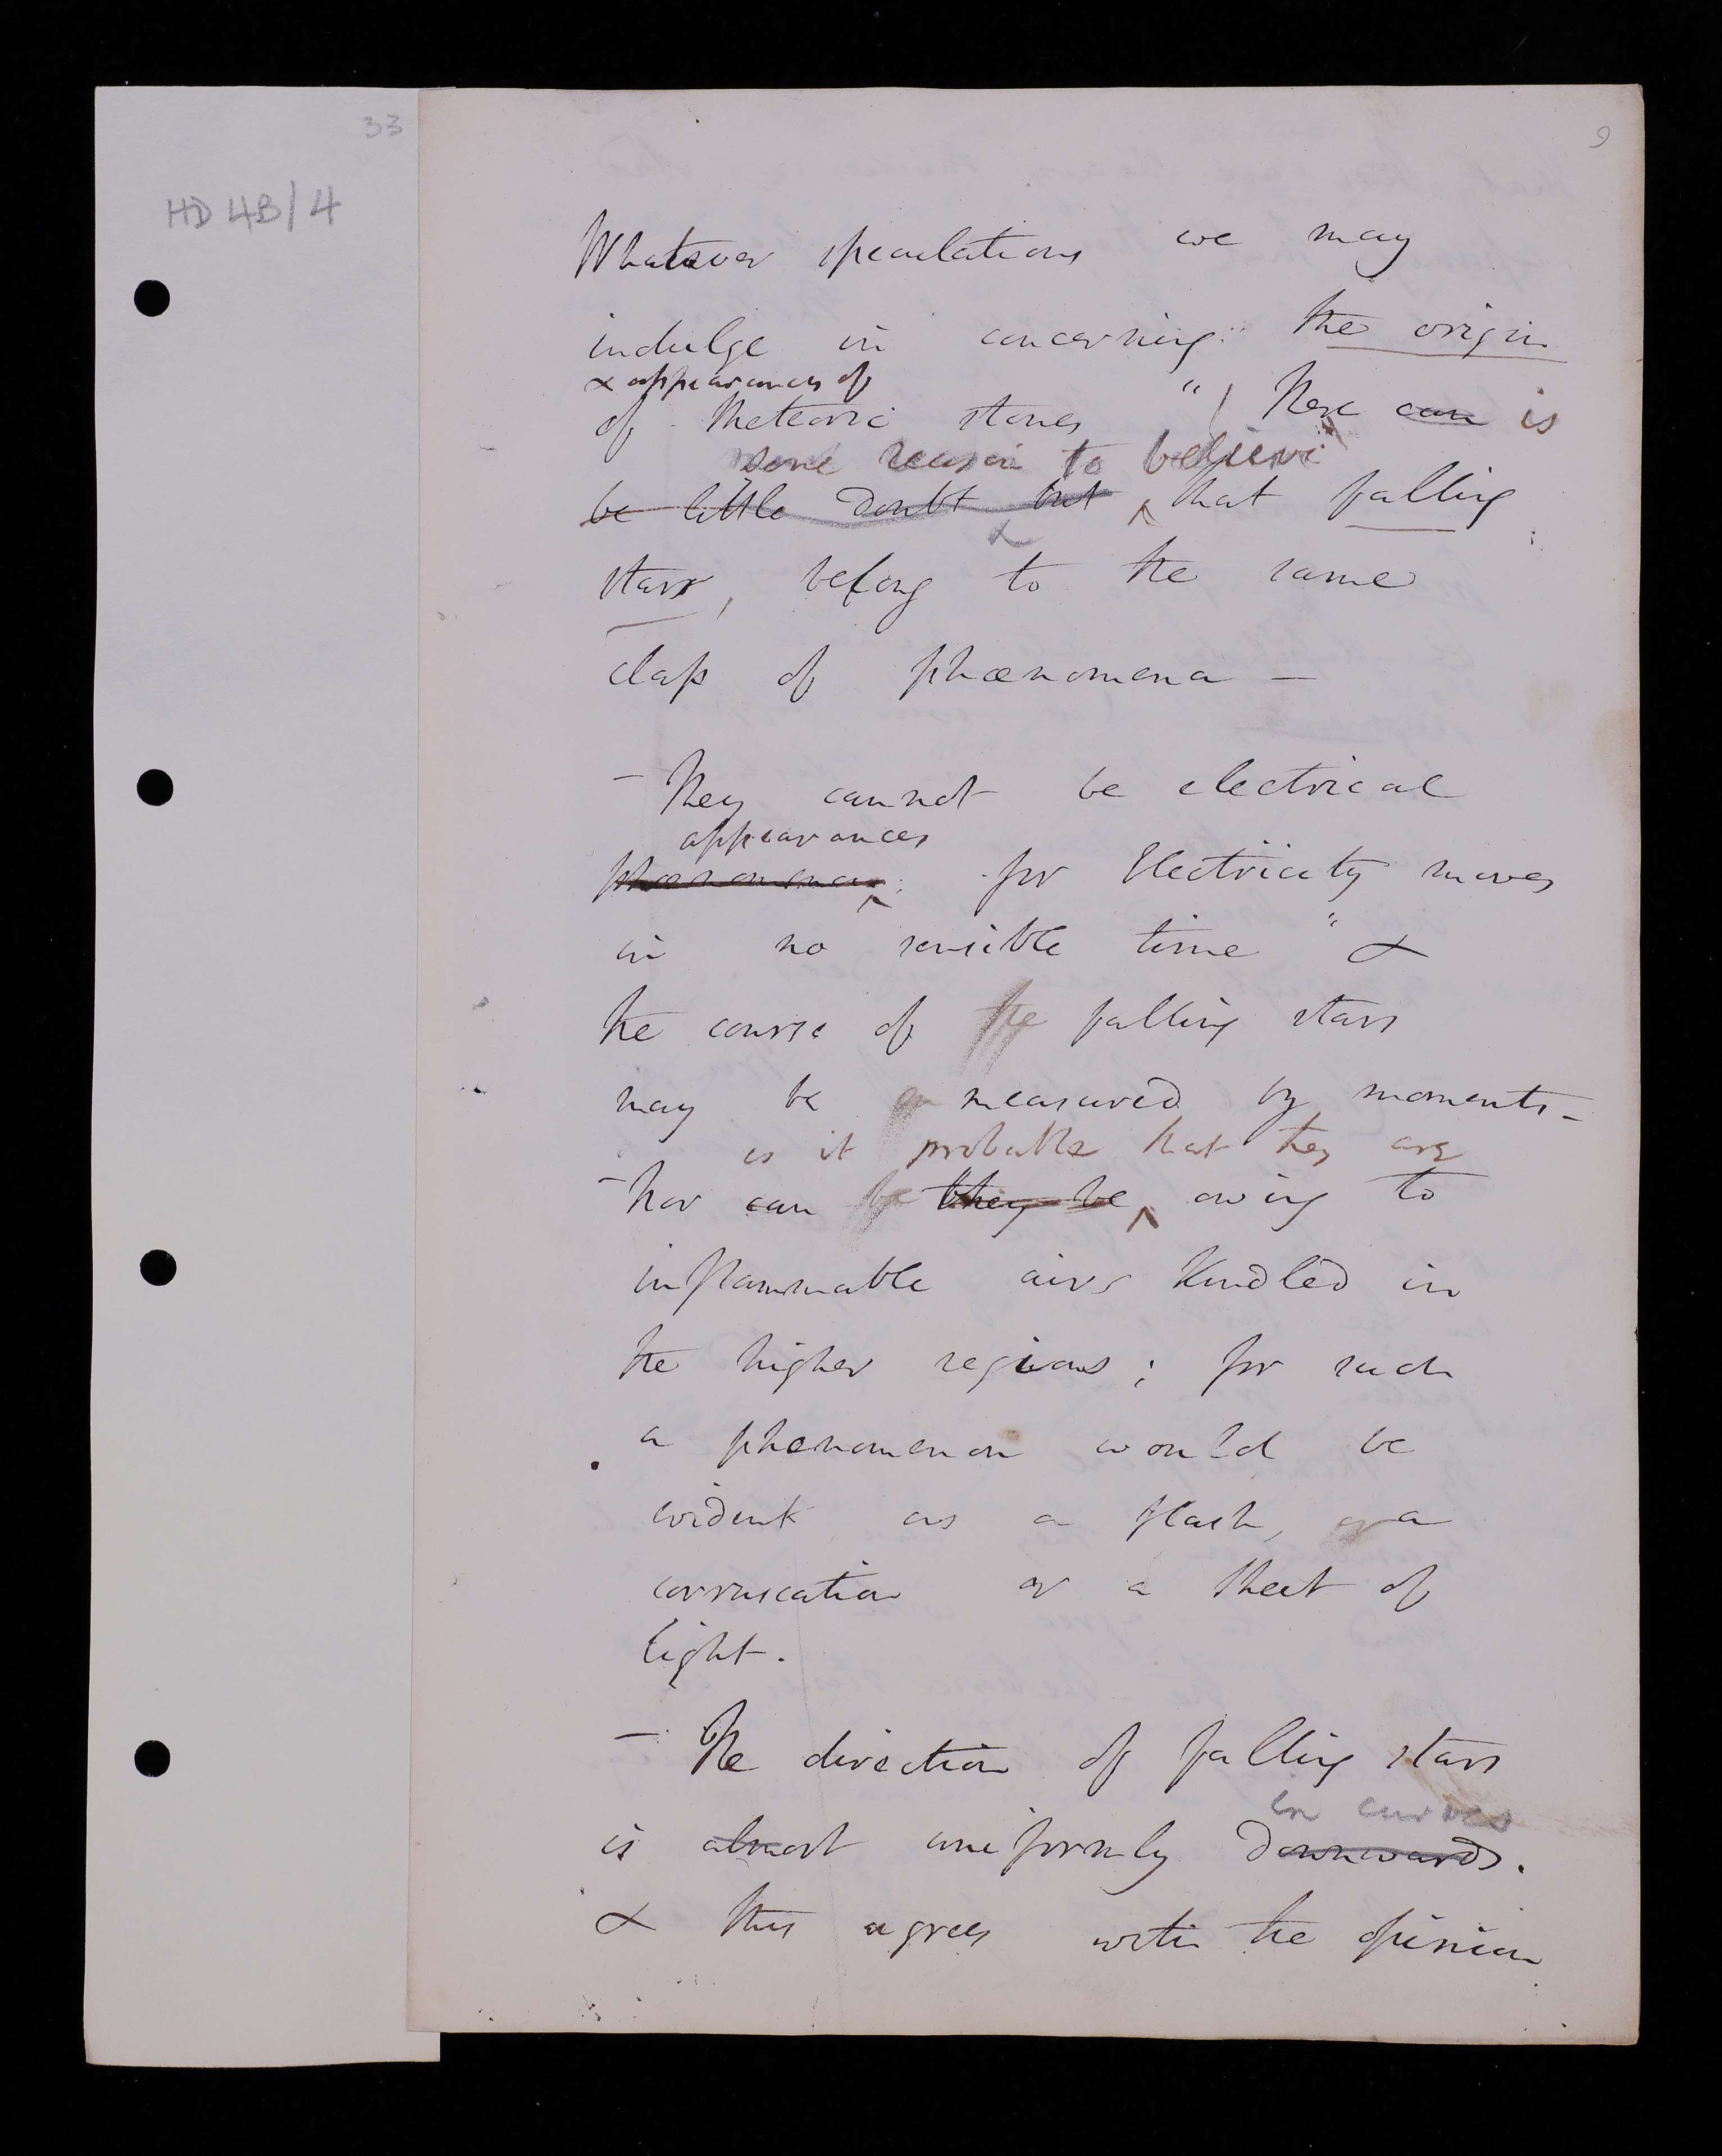 33
HD 4B/4
9
Whatever speculations we may
indulge in concerning the origin
& appearances of
of Meteoric stones " / there can is
some reason to believe
be little doubt but that falling
stars, belong to the same
class of phænomena —
— They cannot be electrical
appearances
phænomena; for Electricity moves
in no sensible time " &
the course of the falling stars
may be measured by moments —
is it probable that they are
— Nor can be they be owing to
inflammable airs kindled in
the higher regions; for such
a phenomenon would be
evident as a flash, or a
corruscation or a sheet of
light.
— The direction of falling stars
in curves
is almost uniformly downwards.
& this agrees with the opinion